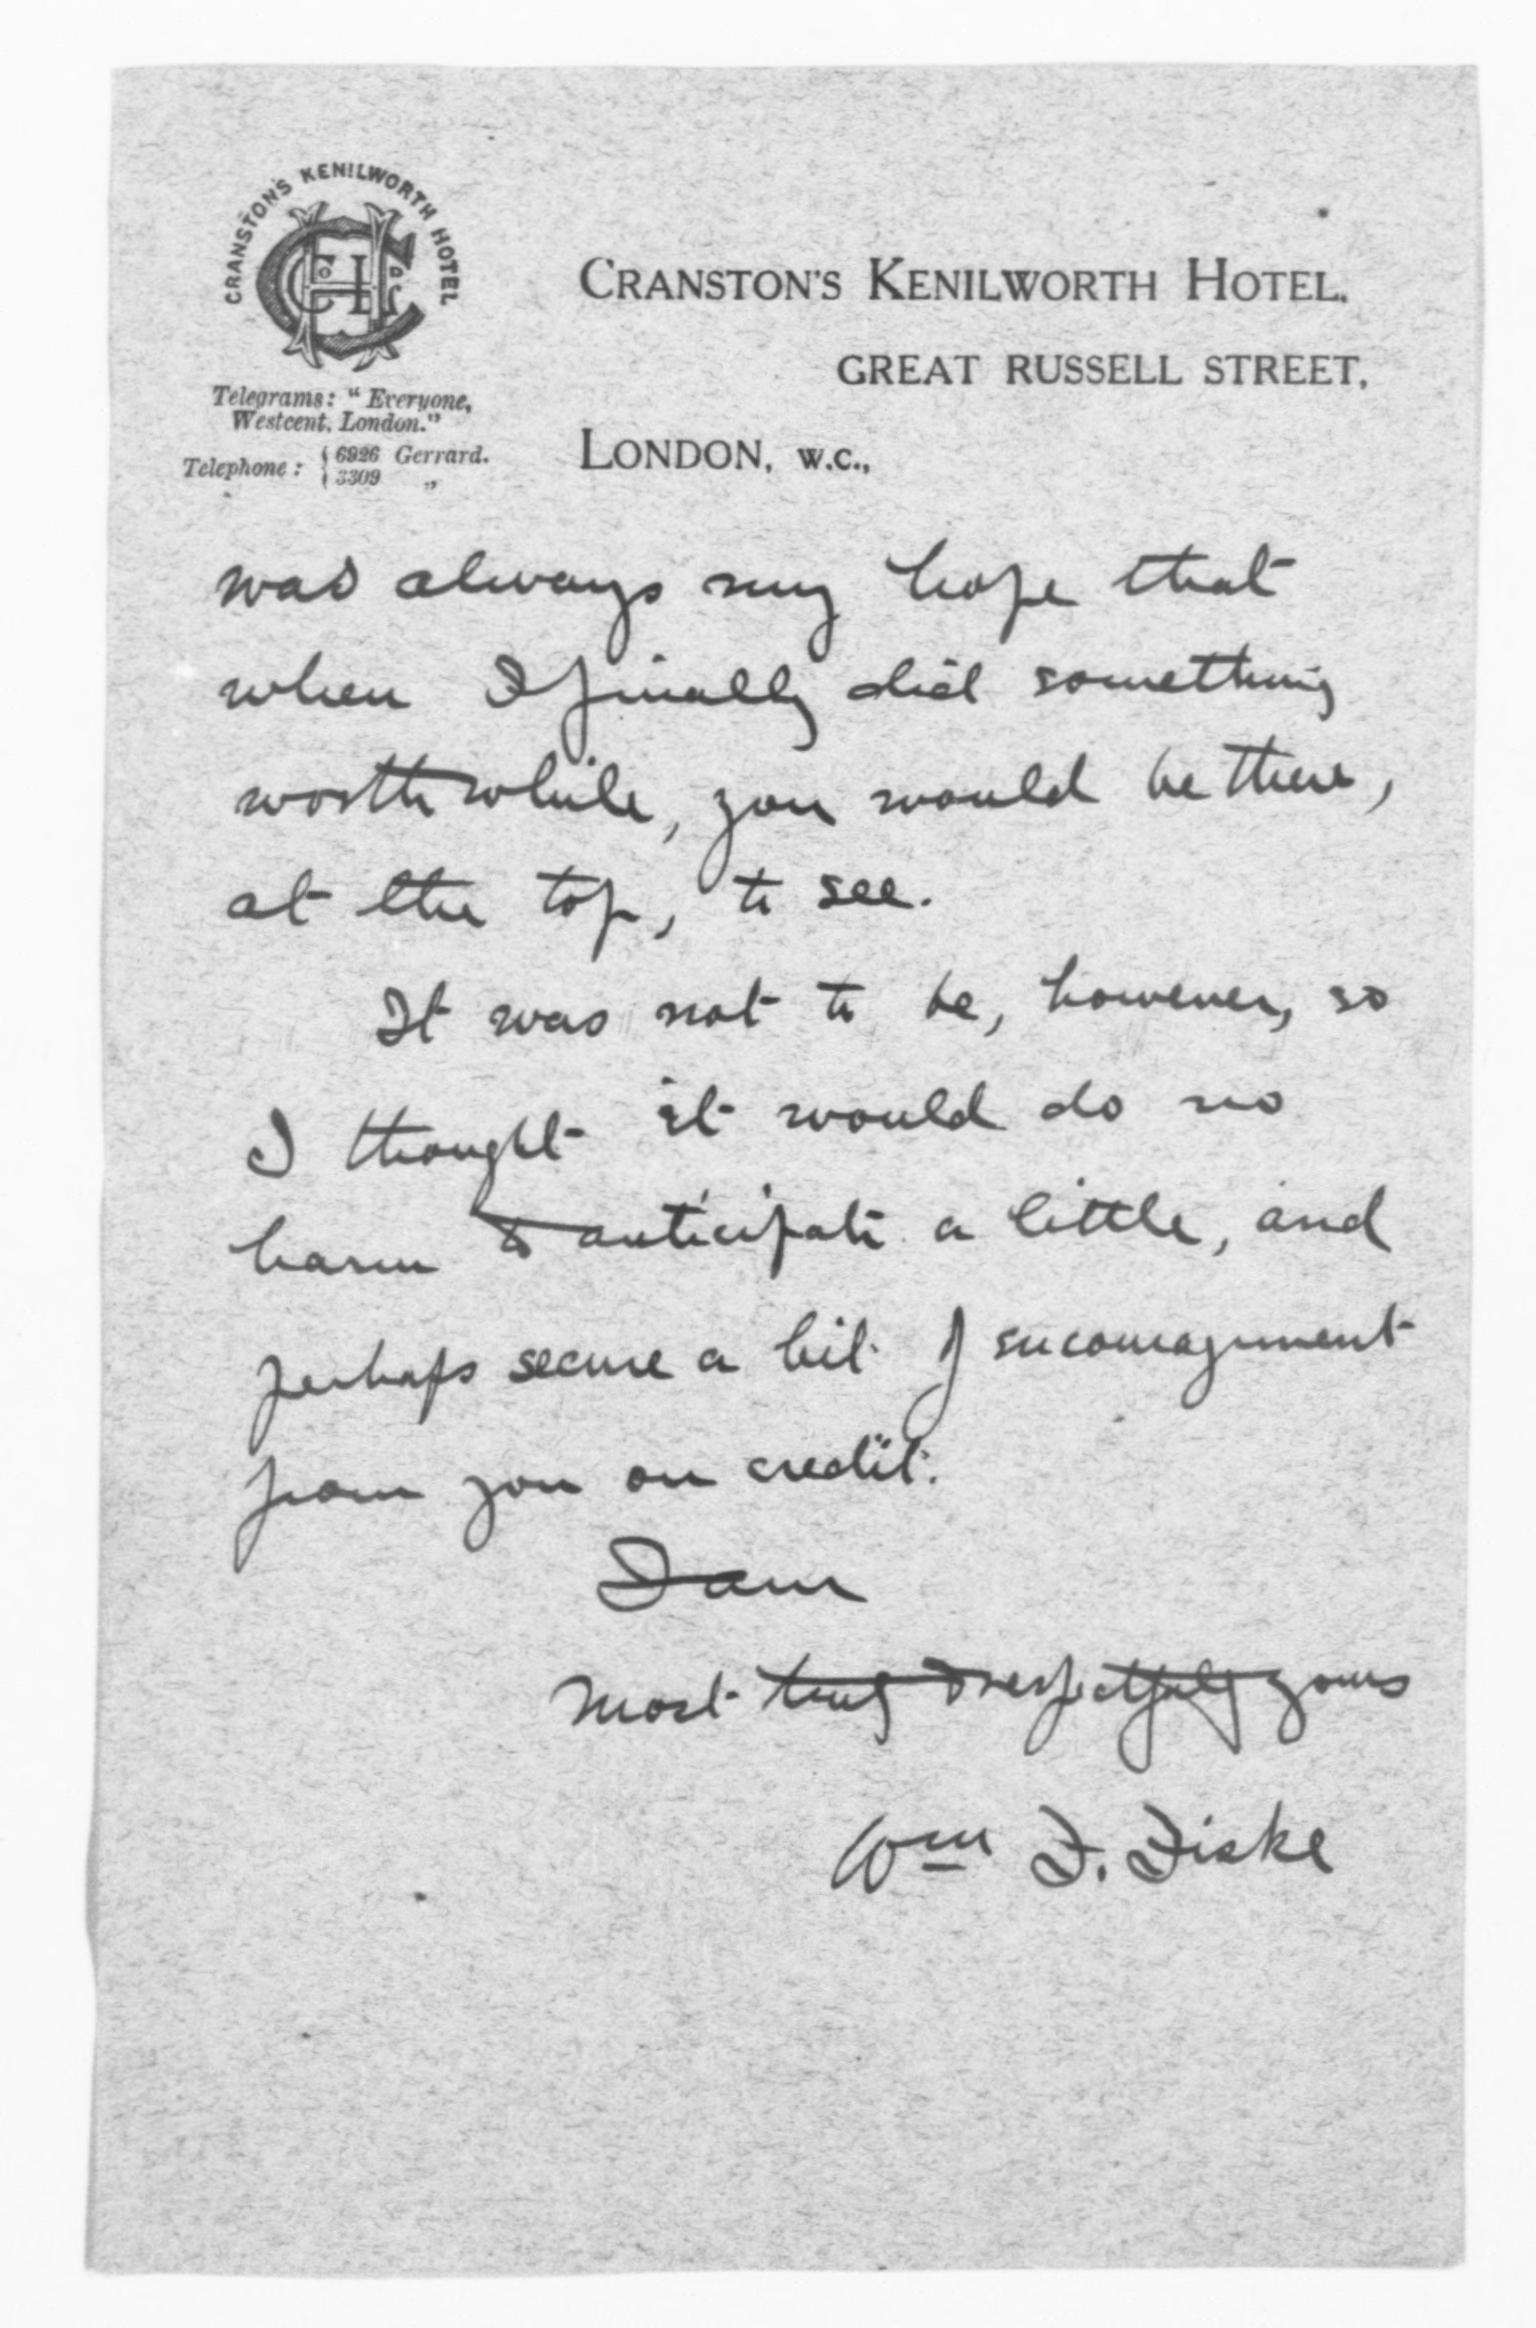 CRANSTON'S KENILWORTH HOTEL
CHC
Telegrams: "Everyone,
Westcent, London."
Telephone: { 6926 Gerrard.
{ 3309 „
CRANSTON'S KENILWORTH HOTEL,
GREAT RUSSELL STREET,
LONDON, W.C.,
was always my hope that
when I finally did something
worth while, you would be there,
at the top, to see.
It was not to be, however, so
I thought it would do no
harm to anticipate a little, and
perhaps secure a bit of encouragement
from you on credit.
I am
Most truly & respectfully yours
Wm F. Fiske